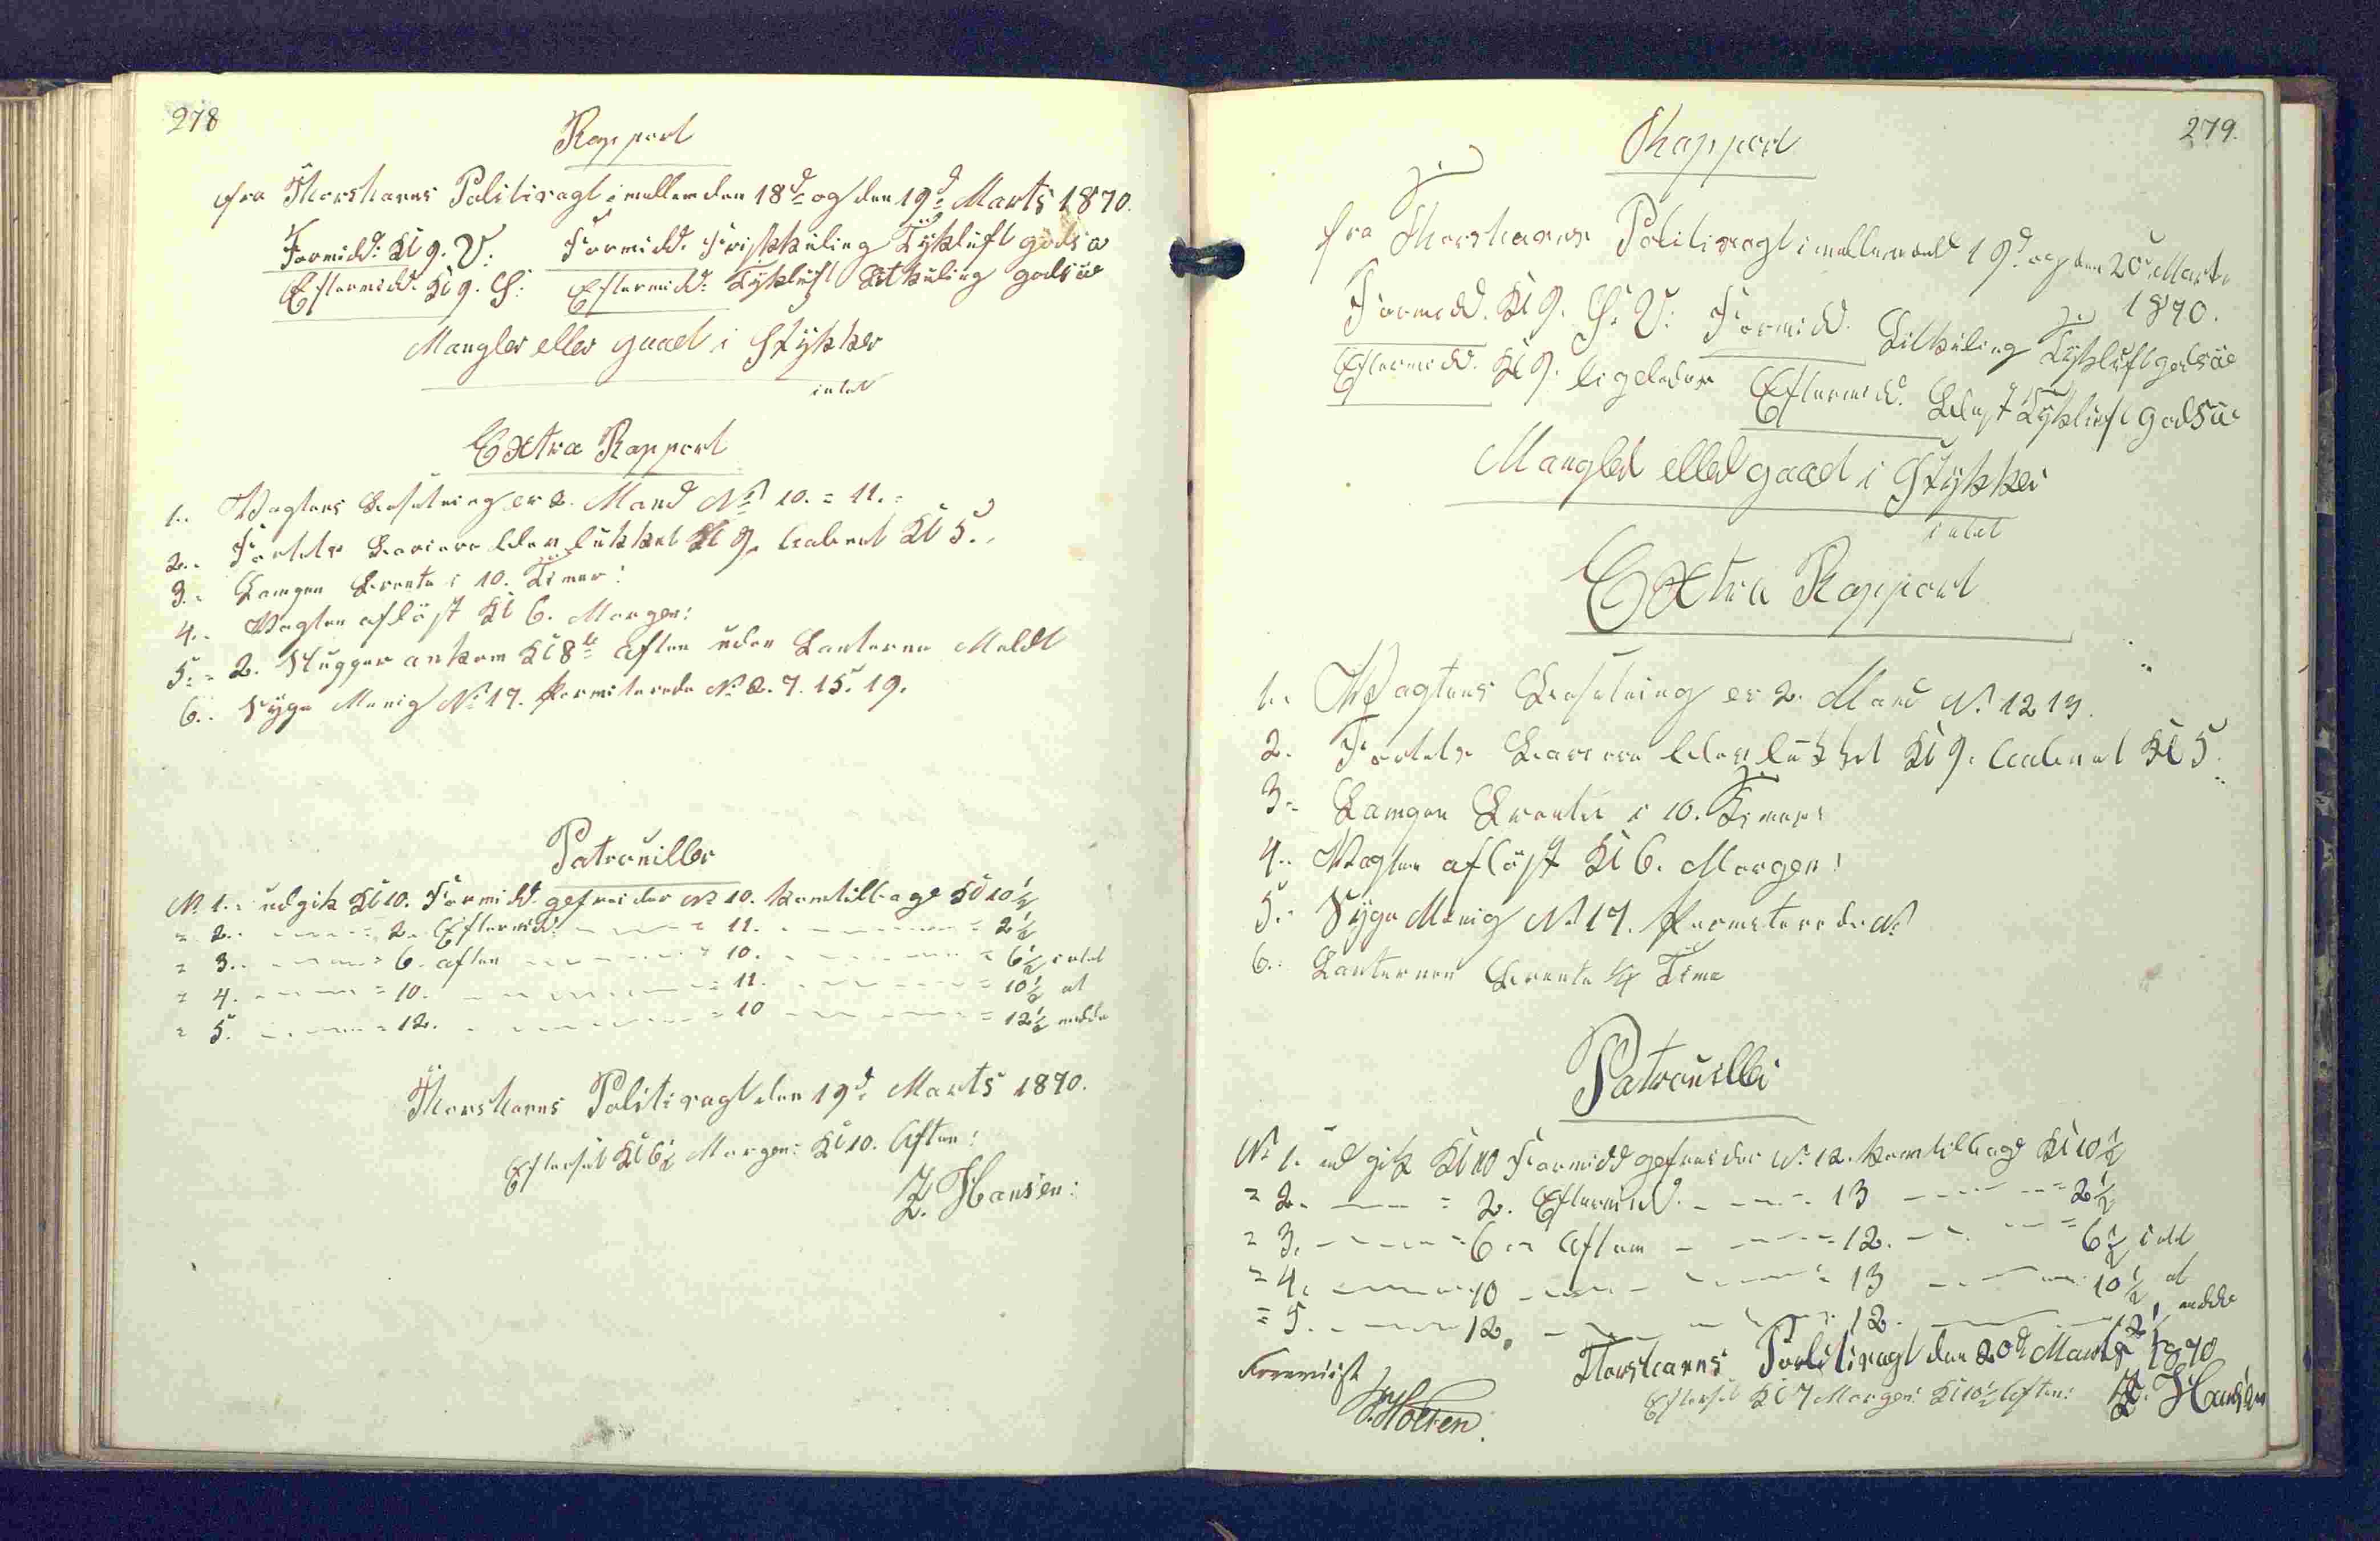 278
Rapport
fra Thorshavns Politivagt imellem den 18d og den 19d Marts 1870.
Formidd: Kl 9. V: Formidd. Friskkuling Tykluft godsæ
Eftermidd. Kl 9. S: Eftermidd: Tykluft Litkuling godsæ
Mangler eller gaaet i Stykker
intet
Extra Rapport
1. Vagtens Besetning er 2. Mand No 10. = 11. =
2. Fortets Barriere blev lukket Kl 9. aabnet Kl 5.
3. Lampen Brente i 10. Timer:
4. Vagten afløst Kl 6. Morgen:
5. = 2. Slupper ankom Kl 8te Aften uden Lanterne Meldt
6. Syge Menig No 17. Permiterede No 2. 7. 15. 19.
Patrouiller
No 1. udgik Kl 10. Formidd. gefreider No 10. kom tilbage Kl 10½
= 2. = 2. Eftermidd: = 11. = 2½
= 3. = 6. aften = 10. = 6½ intet
= 4. = 10. = 11. = 10½ at
= 5. = 12. = 10 = 12½ melde
Thorshavns Politivagt den 19d Marts 1870.
Efterset Kl 6½ Morgen: Kl 10. Aften:
Z. Hansen:
279.
Rapport
fra Thorshavns Politivagt imellem den 19d. og den 20d Marts
1870.
Formidd. Kl 9. S. V: Formidd. Litkuling Tykluft godsæ
Eftermidd. Kl 9. ligeledes Eftermidd. Blest Tykluft godsæ
Mangler eller gaaet i Stykker
intet
Extra Rapport
1. Vagtens Besetning er 2. Mand No 12 13.
2. Fortets Barriere blev lukket Kl 9. aabnet Kl 5.
3. Lampen Brente i 10. Timer:
4. Vagten afløst Kl 6. Morgen:
5. Syge Menig No 17. Permiterede No
6. Lanternen Brente ¼ Time
Patrouiller
No 1. udgik Kl 10 Formidd gefreider No 12. kom tilbage Kl 10½
= 2. = 2. Eftermidd. 13 = 2½
= 3. = 6 Aften = 12. = 6½ intet
= 4. 10 = 13 10½ at
= 5. 12. = 12. 12½ melde
Thorshavns Politivagt den 20d Marts 1870
Foreviist
Efterset Kl 7 Morgen: Kl 10½ Aften: Z. Hansen
Holten.